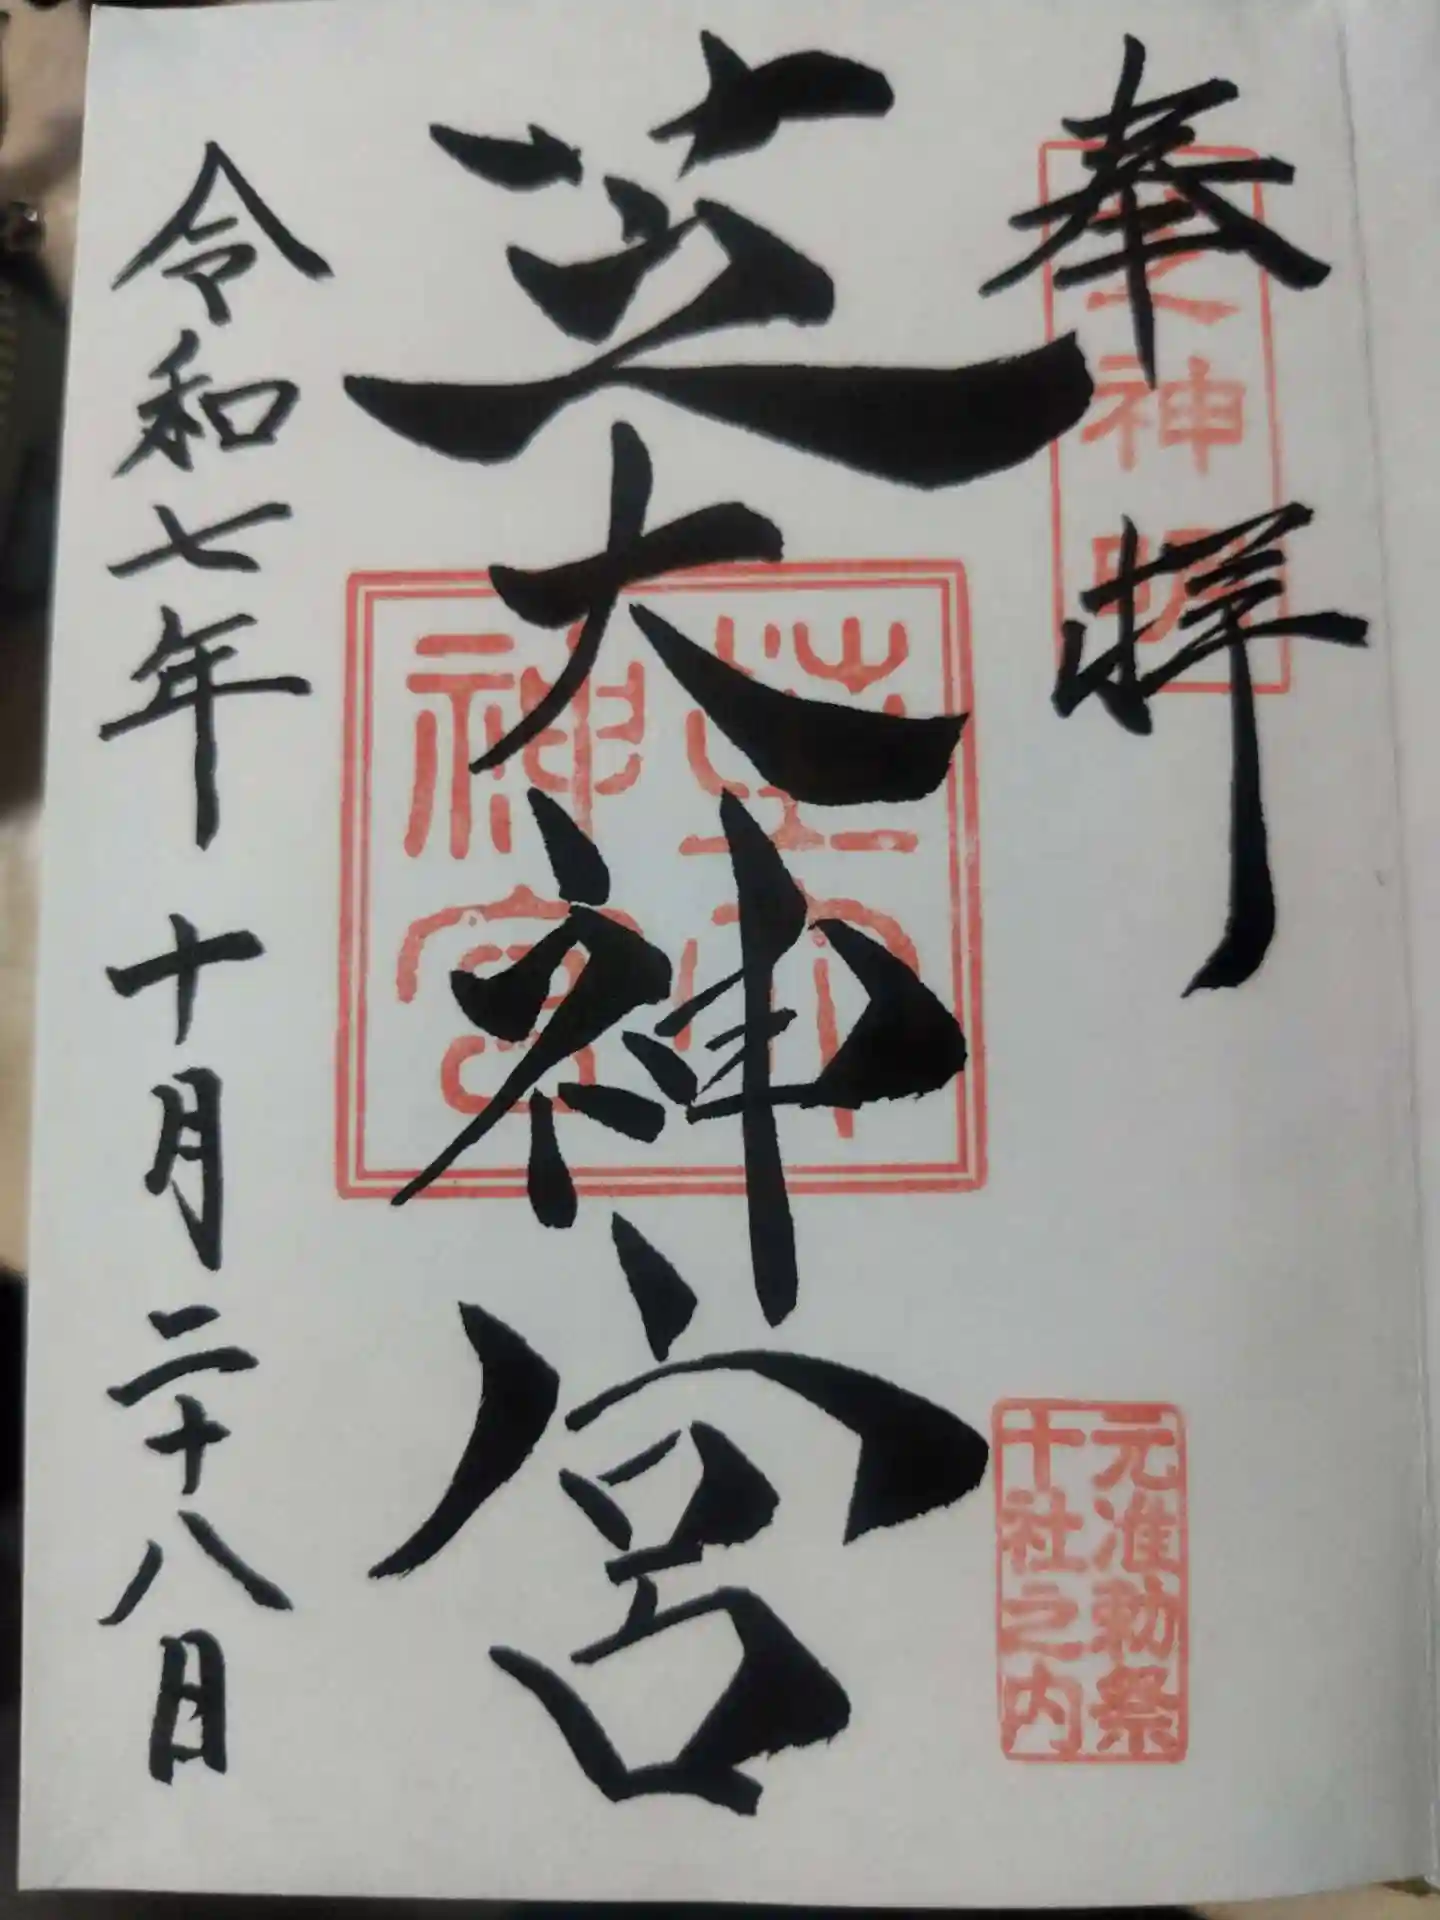 奉拝
芝神明
元准勅祭
十社之内
芝大神宮
芝大
神宮
令和七年 十月二十八日